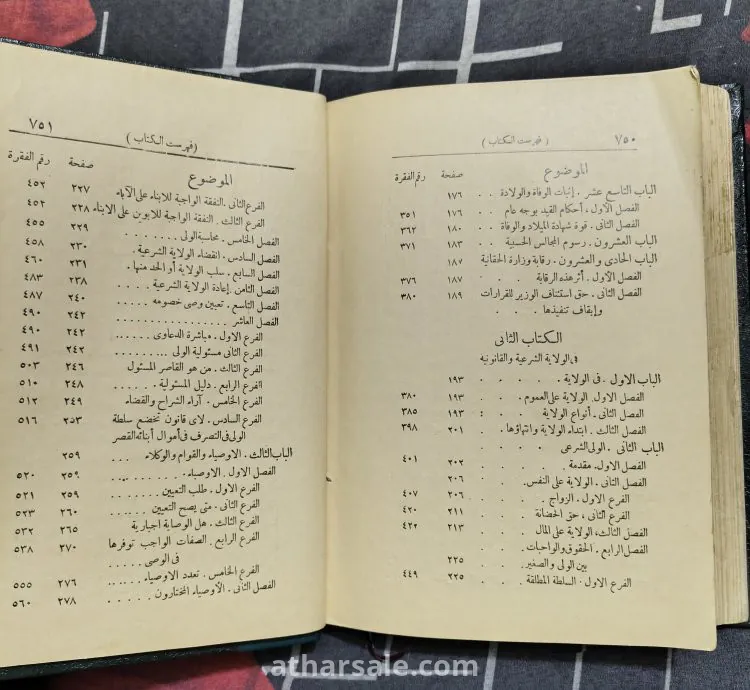 ٧٥٠
(فهرست الكتاب)
الموضوع صفحة رقم الفقرة
الباب التاسع عشر . إثبات الوفاة والولادة . . ١٧٦
الفصل الاول . أحكام القيد بوجه عام . . ١٧٦ ٣٥١
الفصل الثانى . قوة شهادة الميلاد والوفاة . . ١٨٠ ٣٦٢
الباب العشرون . رسوم المجالس الحسبية . . ١٨٣ ٣٧١
الباب الحادى والعشرون . رقابة وزارة الحقانية ١٨٧
الفصل الاول . أثر هذه الرقابة . . . ١٨٧ ٣٧٦
الفصل الثانى . حق استئناف الوزير للقرارات ١٨٩ ٣٨٠
وإيقاف تنفيذها . . .
الكتاب الثانى
فى الولاية الشرعية والقانونيه
الباب الاول . فى الولاية . . . . . ١٩٣
الفصل الاول . الولاية على العموم . . . ١٩٣ ٣٨٠
الفصل الثانى . أنواع الولاية . . . ١٩٣ ٣٨٥
الفصل الثالث . ابتداء الولاية وانتهاؤها . . ٢٠١ ٣٩٨
الباب الثانى . الولى الشرعى . . . .
الفصل الاول . مقدمة . . . . ٢٠٢ ٤٠١
الفصل الثانى . الولاية على النفس . . . ٢٠٦
الفرع الاول . الزواج . . . . ٢٠٦ ٤٠٧
الفرع الثانى . حق الحضانة . . . ٢١١ ٤٢٠
الفصل الثالث . الولاية على المال . . . ٢١٣ ٤٢٢
الفصل الرابع . الحقوق والواجبات . . .
بين الولى والصغير . . . ٢٢٥
الفرع الاول . السلطة المطلقة . . . ٢٢٥ ٤٤٩
٧٥١
(فهرست الكتاب)
الموضوع صفحة رقم الفقرة
الفرع الثانى . النفقة الواجبة للابناء على الآباء ٢٢٧ ٤٥٢
الفرع الثالث . النفقة الواجبة للابوين على الابناء ٢٢٨ ٤٥٢
الفصل الخامس . محاسبة الولى . . . . . ٢٢٩ ٤٥٥
الفصل السادس . انقضاء الولاية الشرعية . ٢٣٠ ٤٥٨
الفصل السابع . سلب الولاية أو الحد منها . ٢٣١ ٤٦٠
الفصل الثامن . إعادة الولاية الشرعية . . . . ٢٣٨ ٤٨٣
الفصل التاسع . تعيين وصى خصومه . . . . ٢٤٠ ٤٨٧
الفصل العاشر . . . . . . . . . . . . . . ٢٤٢ ٤٩٠
الفرع الاول . مباشرة الدعاوى . . . . . ٢٤٢ ٤٩٠
الفرع الثانى . مسئولية الولى . . . . . . . . ٢٤٢ ٤٩١
الفرع الثالث . من هو القاصر المسئول ٢٤٦ ٥٠٣
الفرع الرابع . دليل المسئولية . . . . . . ٢٤٨ ٥١٠
الفرع الخامس . آراء الشراح والقضاء ٢٤٩ ٥١٢
الفرع السادس . لاى قانون تخضع سلطة ٢٥٣ ٥١٦
الولى فى التصرف فى أموال أبنائه القصر
الباب الثالث . الاوصياء والقوام والوكلاء . . . ٢٥٩
الفصل الاول . الاوصياء . . . . . . . . . ٢٥٩ ٥٢٠
الفرع الاول . طلب التعيين . . . . . . . ٢٥٩ ٥٢١
الفرع الثانى . متى يصح التعيين . . . . . ٢٦٠ ٥٢٣
الفرع الثالث . هل الوصاية اجبارية ٢٦٥ ٥٣٢
الفرع الرابع . الصفات الواجب توفرها ٢٧٠ ٥٣٨
فى الوصى . . . . .
الفرع الخامس . تعدد الاوصياء . . . . . . ٢٧٦ ٥٥٥
الفصل الثانى . الأوصياء المختارون . . . . . ٢٧٨ ٥٦٠
atharsale.com